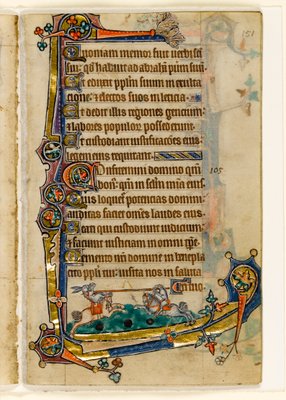 151
Quoniam memor fuit verbi sci
sui: qd̄ habuit ad abraham puerum suū
Et eduxit pplm̄ suum in exulta
cione: et electos suos in leticia
Et dedit illis regiones gencium:
et labores populor possederunt
Ut custodiant iustificaciones eius:
legem eius requirant
105
Confitemini domino qm̄
bon: qm̄ in sclm̄ mīa eius
Quis loquetur potencias domini:
auditas faciet omēs laudes eius
Beati qui custodiunt iudicium:
et faciunt iusticiam in omni tpe
Memento nr̄i domine in beneplā
cito ppli tui: visita nos in saluta
ri tuo